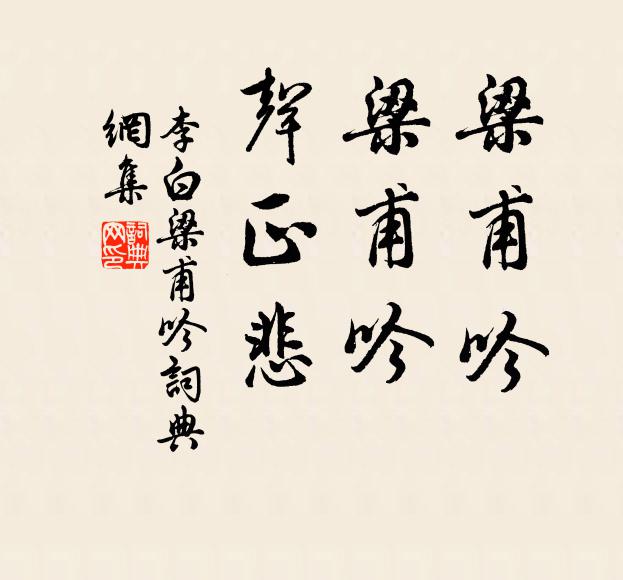 梁甫吟
梁甫吟
聲正悲
李白梁甫吟詞典
網集
詞典
网印